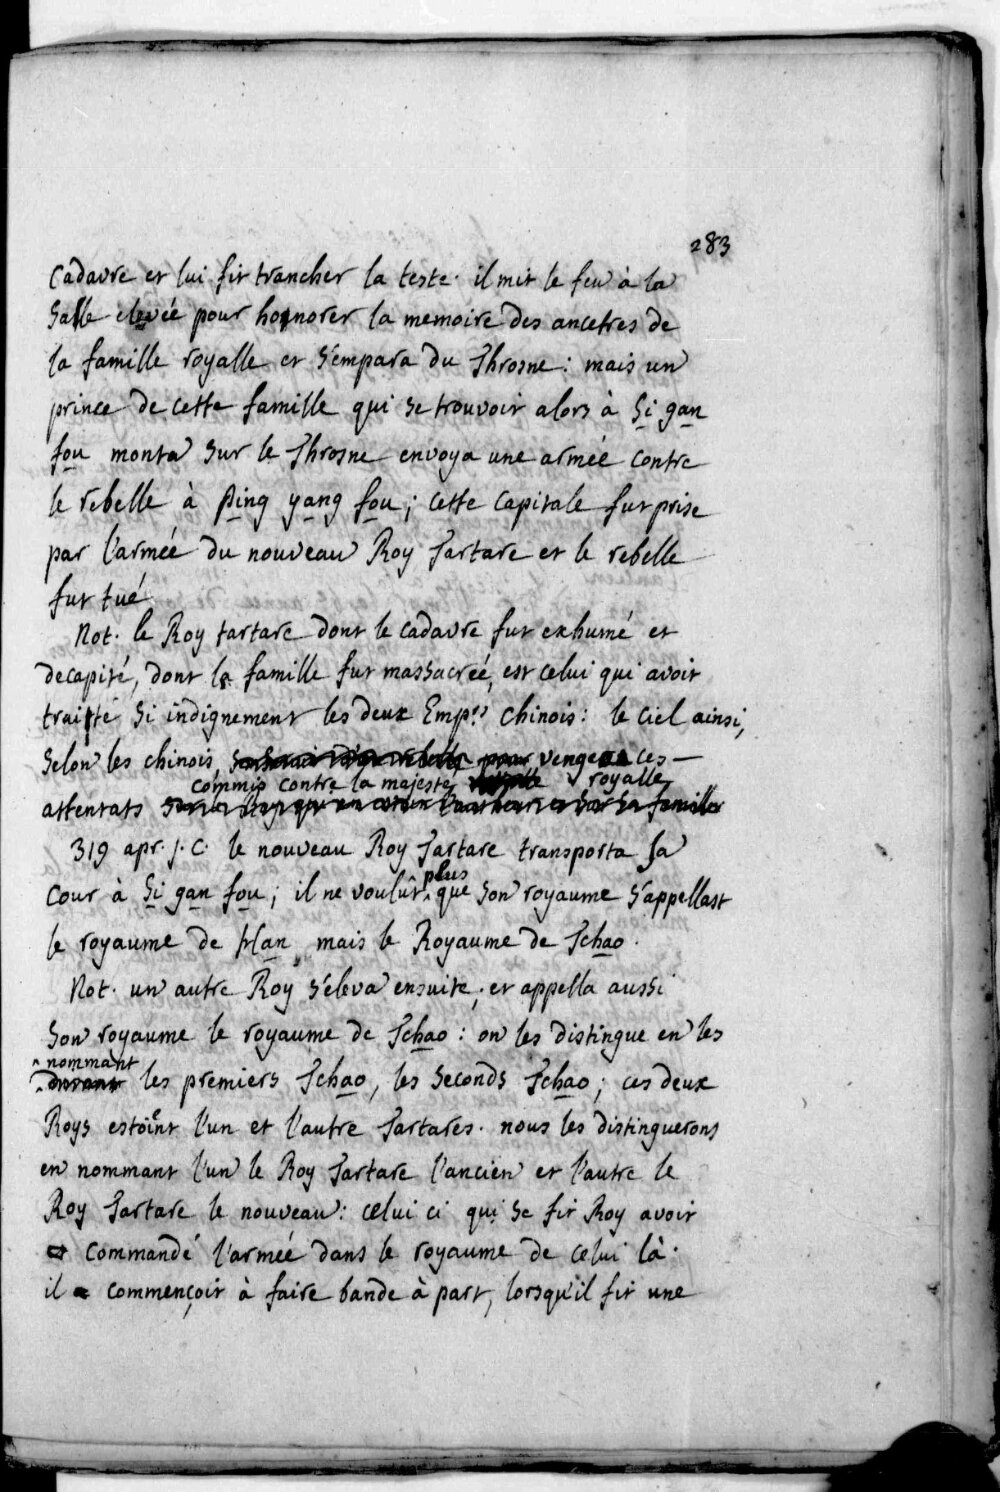 283
Cadavre et lui fit trancher la teste. il mit le feu à la
Salle elevée pour honnorer la memoire des ancetres de
la famille royalle et s'empara du Throsne : mais un
prince de cette famille qui se trouvoit alors à Si gan
fou monta sur le Throsne envoya une armée contre
le rebelle à Ping yang fou ; cette capitale fut prise
par l'armée du nouveau Roy Tartare et le rebelle
fut tué
Not. le Roy tartare dont le cadavre fut exhumé et
decapité, dont la famille fut massacreé, est celui qui avoit
traité si indignement les deux Emp.rs chinois : le ciel ainsi,
Selon les chinois venge ces
commis contre la majesté royalle
attentats
319 apr. J. C. le nouveau Roy Tartare transporta sa
plus
Cour à Si gan fou ; il ne voulût que son royaume s'appellast
le royaume de Han mais le Royaume de Tchao.
Not. un autre Roy s'eleva ensuite, et appella aussi
Son royaume le royaume de Tchao : on les distingue en les
nommant
les premiers Tchao, les seconds Tchao ; ces deux
Roys estoient l'un et l'autre Tartares. nous les distinguerons
en nommant l'un le Roy Tartare l'ancien et l'autre le
Roy Tartare le nouveau : celui ci qui se fit Roy avoit
commandé l'armée dans le royaume de celui là.
il commençoit à faire bande à part, lorsqu'il fit une